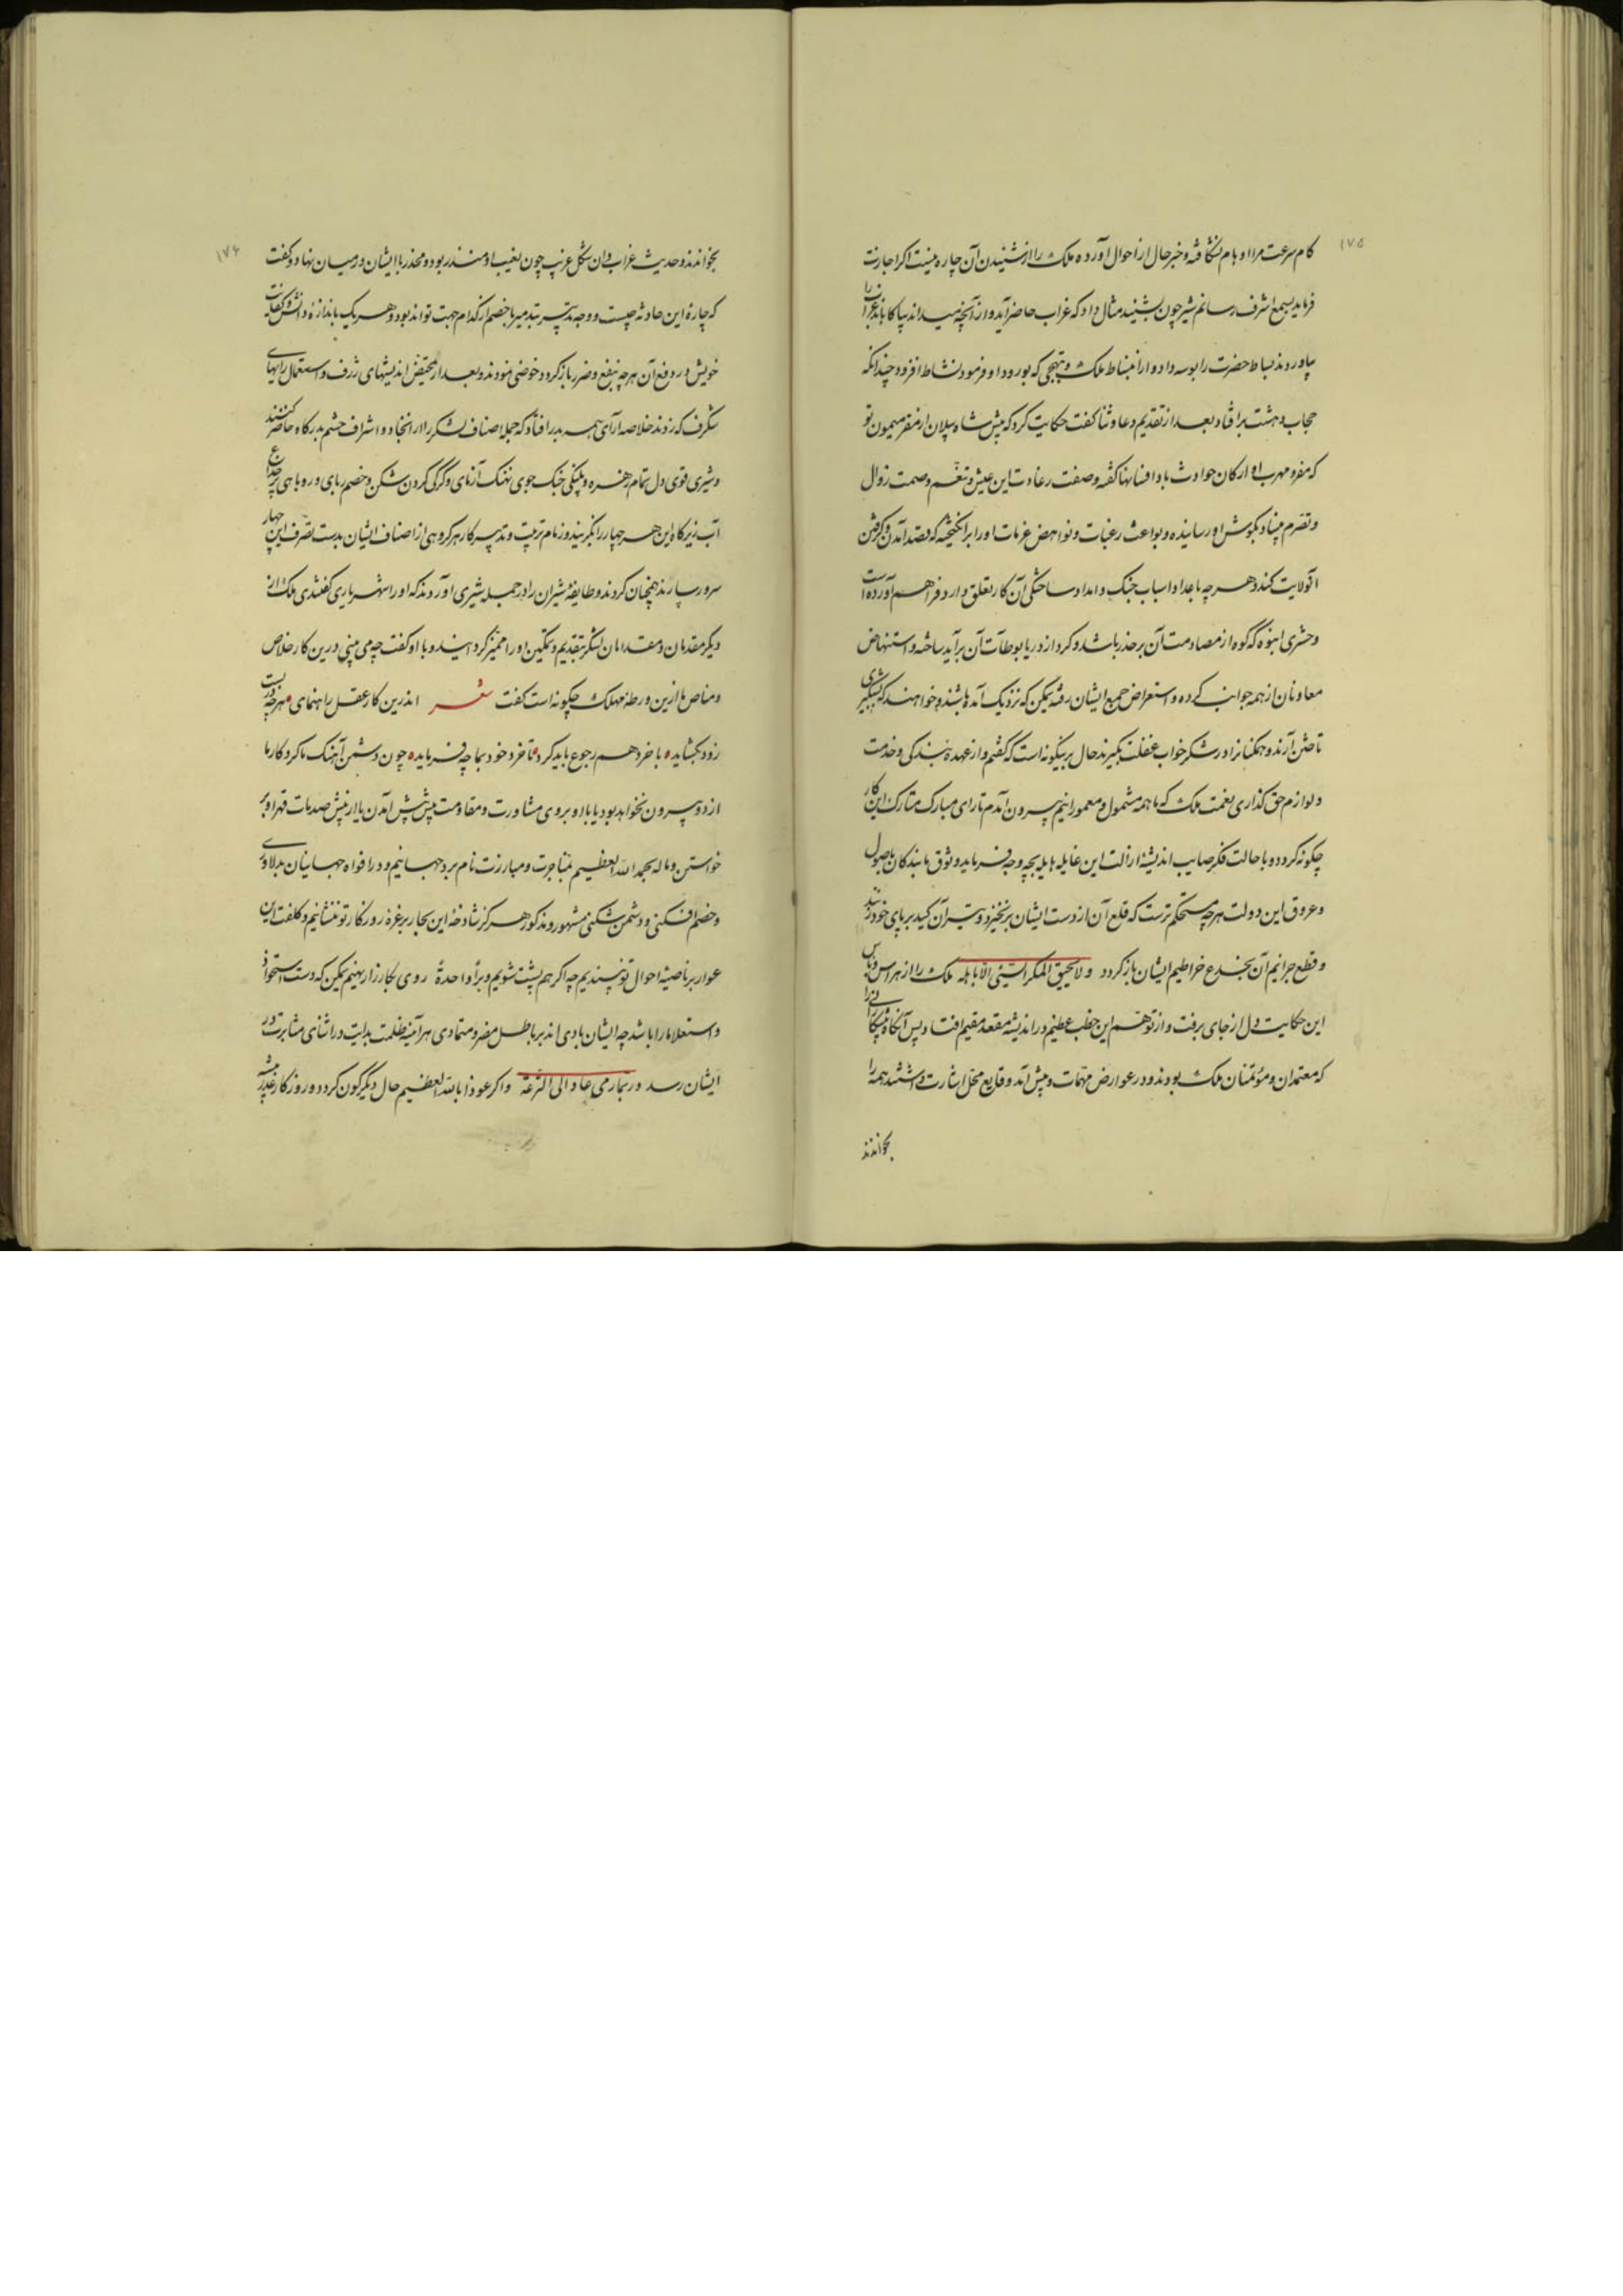 ۱۷۵
کام سرعت مرا اوهام نشکافته وخبر حال از احوال آورده ملک را از شنیدن آن چاره نیست اکر اجازت
فرماید بسمع اشرف رسانم شیر چون بشنید مثال داد که غراب حاضر آید و از آنچه میداند بیاکاهاند غراب را
بیاوردند بساط حضرت را بوسه داد و از انبساط ملک و تبهجی که بورود او فرمود نشاط افزود چندانکه
حجاب دهشت برافتاد بعد از تقدیم دعا وثنا کفت حکایت کرد که پیش شاه پیلان از مفر میمون تو
که مفر و مهرب او ارکان حوادث باد افسانها کفته وصفت رغادت این عیش و تنعم وصمت زوال
و تصرم مبیناد بکوش او رسانیده و بواعث رغبات و نواهض عزمات او را برانکیخته که قصد آمدن و کرفتن
این ولایت کند و هرچه باعداد اسباب جنک و امداد ساختکی آن کار تعلق دارد فراهم آورده است
وحشری انبوه که کوه از مصادمت آن برحذر باشد و کرد از دریا بوطآت آن برآید ساخته و استنهاض
معاونان از همه جوانب کرده و استعراض جمیع ایشان رفته یمکن که نزدیک آمده باشند و خواهند که بشبکیری
تاختن آرند و همکنانرا در شکر خواب غفلت بکیرند حال برینکونه است که کفتم و از عهده بندکی و خدمت
و لوازم حق کذاری نعمت ملک که ما همه مشمول و معمور آنیم بیرون آمدم تا رای مبارک متدارک این کار
چکونه کردد و باحالت فکر صایب اندیشهٔ ازالت این غایله هایله بچه وجه فرماید و وثوق ما بندکان باصول
و عروق این دولت هرچه مستحکم ترست که قلع آن از دست ایشان برنخیزد و تیر آن کید بر پای خود زنند
و قطع جراثیم آن بجدع خراطیم ایشان بازکردد ولا یحیق المکر السیئ الا باهله ملک را از هراس و باس
این حکایت دل از جای برفت و از توهم این خطب عظیم در اندیشهٔ مقعد مقیم افتاد پس آنکاه پیشکارانی را
که معتمدان و مؤتمنان ملک بودند و در عوارض مهمات و پیش آمد وقایع محل اشارت داشتند همه را
بخواندند
۱۷۶
بخواندند و حدیث غراب و آن شکل غریب چون نعیب او منذر بود و محذر با ایشان در میان نهاد و کفت
که چارهٔ این حادثه چیست و وجه تدبیر تدمیر ما خصم از کدام جهت تواند بود و هر یک باندازهٔ دانش و کفایت
خویش در دفع آن هرچه بنفع و ضرر بازکردد خوضی نمودند و بعد از تمخیض اندیشهای ژرف و استعمال رایهای
شکرف که زدند خلاصه آرای همه بدر افتاد که جمله اصناف لشکر را از انجاد و اشراف حشم بدرکاه حاضر کنند
و شیری قوی دل تمام زهره و پلنکی جنک جوی نهنک آزمای و کرکی کردن شکن و خصم ربای و روباهی پر خداع
آب زیرکاه این هر چهار را بکزینند و زمام ترتیب و تدبیر کار هر کروهی از اصناف ایشان بدست تصرف این چهار
سرور سپارند همچنان کردند و طایفهٔ شیران را در جمله شیری آوردند که او را شهریاری کفتندی ملک از
دیکر مقدمان و مقدامان لشکر بتقدیم و تمکین او را ممیز کردانید و با او کفت چه می بینی درین کار خلاص
و مناص ما ازین ورطهٔ مهلک چکونه است کفت شعر اندرین کار عقل راهنمای هرچه در بست
زود بکشاید با خرد هم رجوع باید کرد تا خرد خود بما چه فرماید چون دشمن آهنک ما کرد کار ما
از دو بیرون نخواهد بود یا با او بروی مشاورت و مقاومت پیش آمدن یا از پیش صدمات قهر او بر
خواستن و ما له بحمد الله العظیم بمناجزت و مبارزت نام برد جهانیم و در افواه جهانیان بدلاوری
و خصم افکنی و دشمن شکنی مشهور و مذکور هرکز شادخهٔ این بخار بر غرهٔ روزکار تو ننشانیم و کلفت این
عوار بر ناصیهٔ احوال تو نپسندیم چه اکر هم پشت شویم و براً واحدةً روی بکارزار بنهیم یمکن که دست استحواذ
و استعلا ما را باشد چه ایشان بادی اند بر باطل مضر و متمادی هرآینه ظلمت بدایت در اثنای مثابرت در
ایشان رسد وربما رمی عاد الی النزعة واکر عوذا بالله العظیم حال دیکرکون کردد و روزکار غدر پیشه